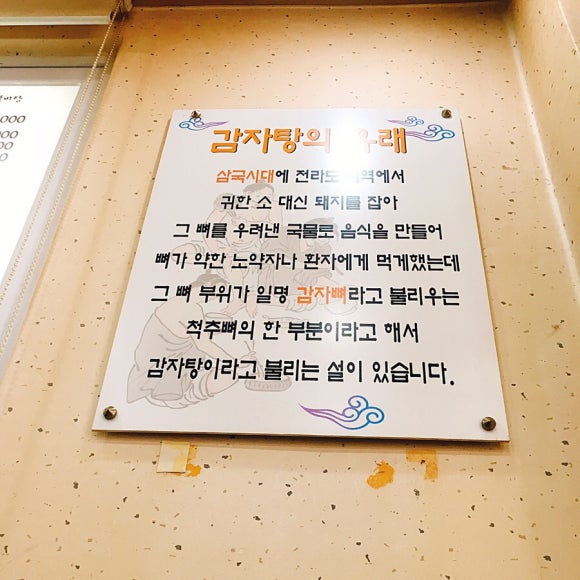 감자탕의 유래
삼국시대에 전라도 지역에서
귀한 소 대신 돼지를 잡아
그 뼈를 우려낸 국물로 음식을 만들어
뼈가 약한 노약자나 환자에게 먹게했는데
그 뼈 부위가 일명 감자뼈라고 불리우는
척추뼈의 한 부분이라고 해서
감자탕이라고 불리는 설이 있습니다.